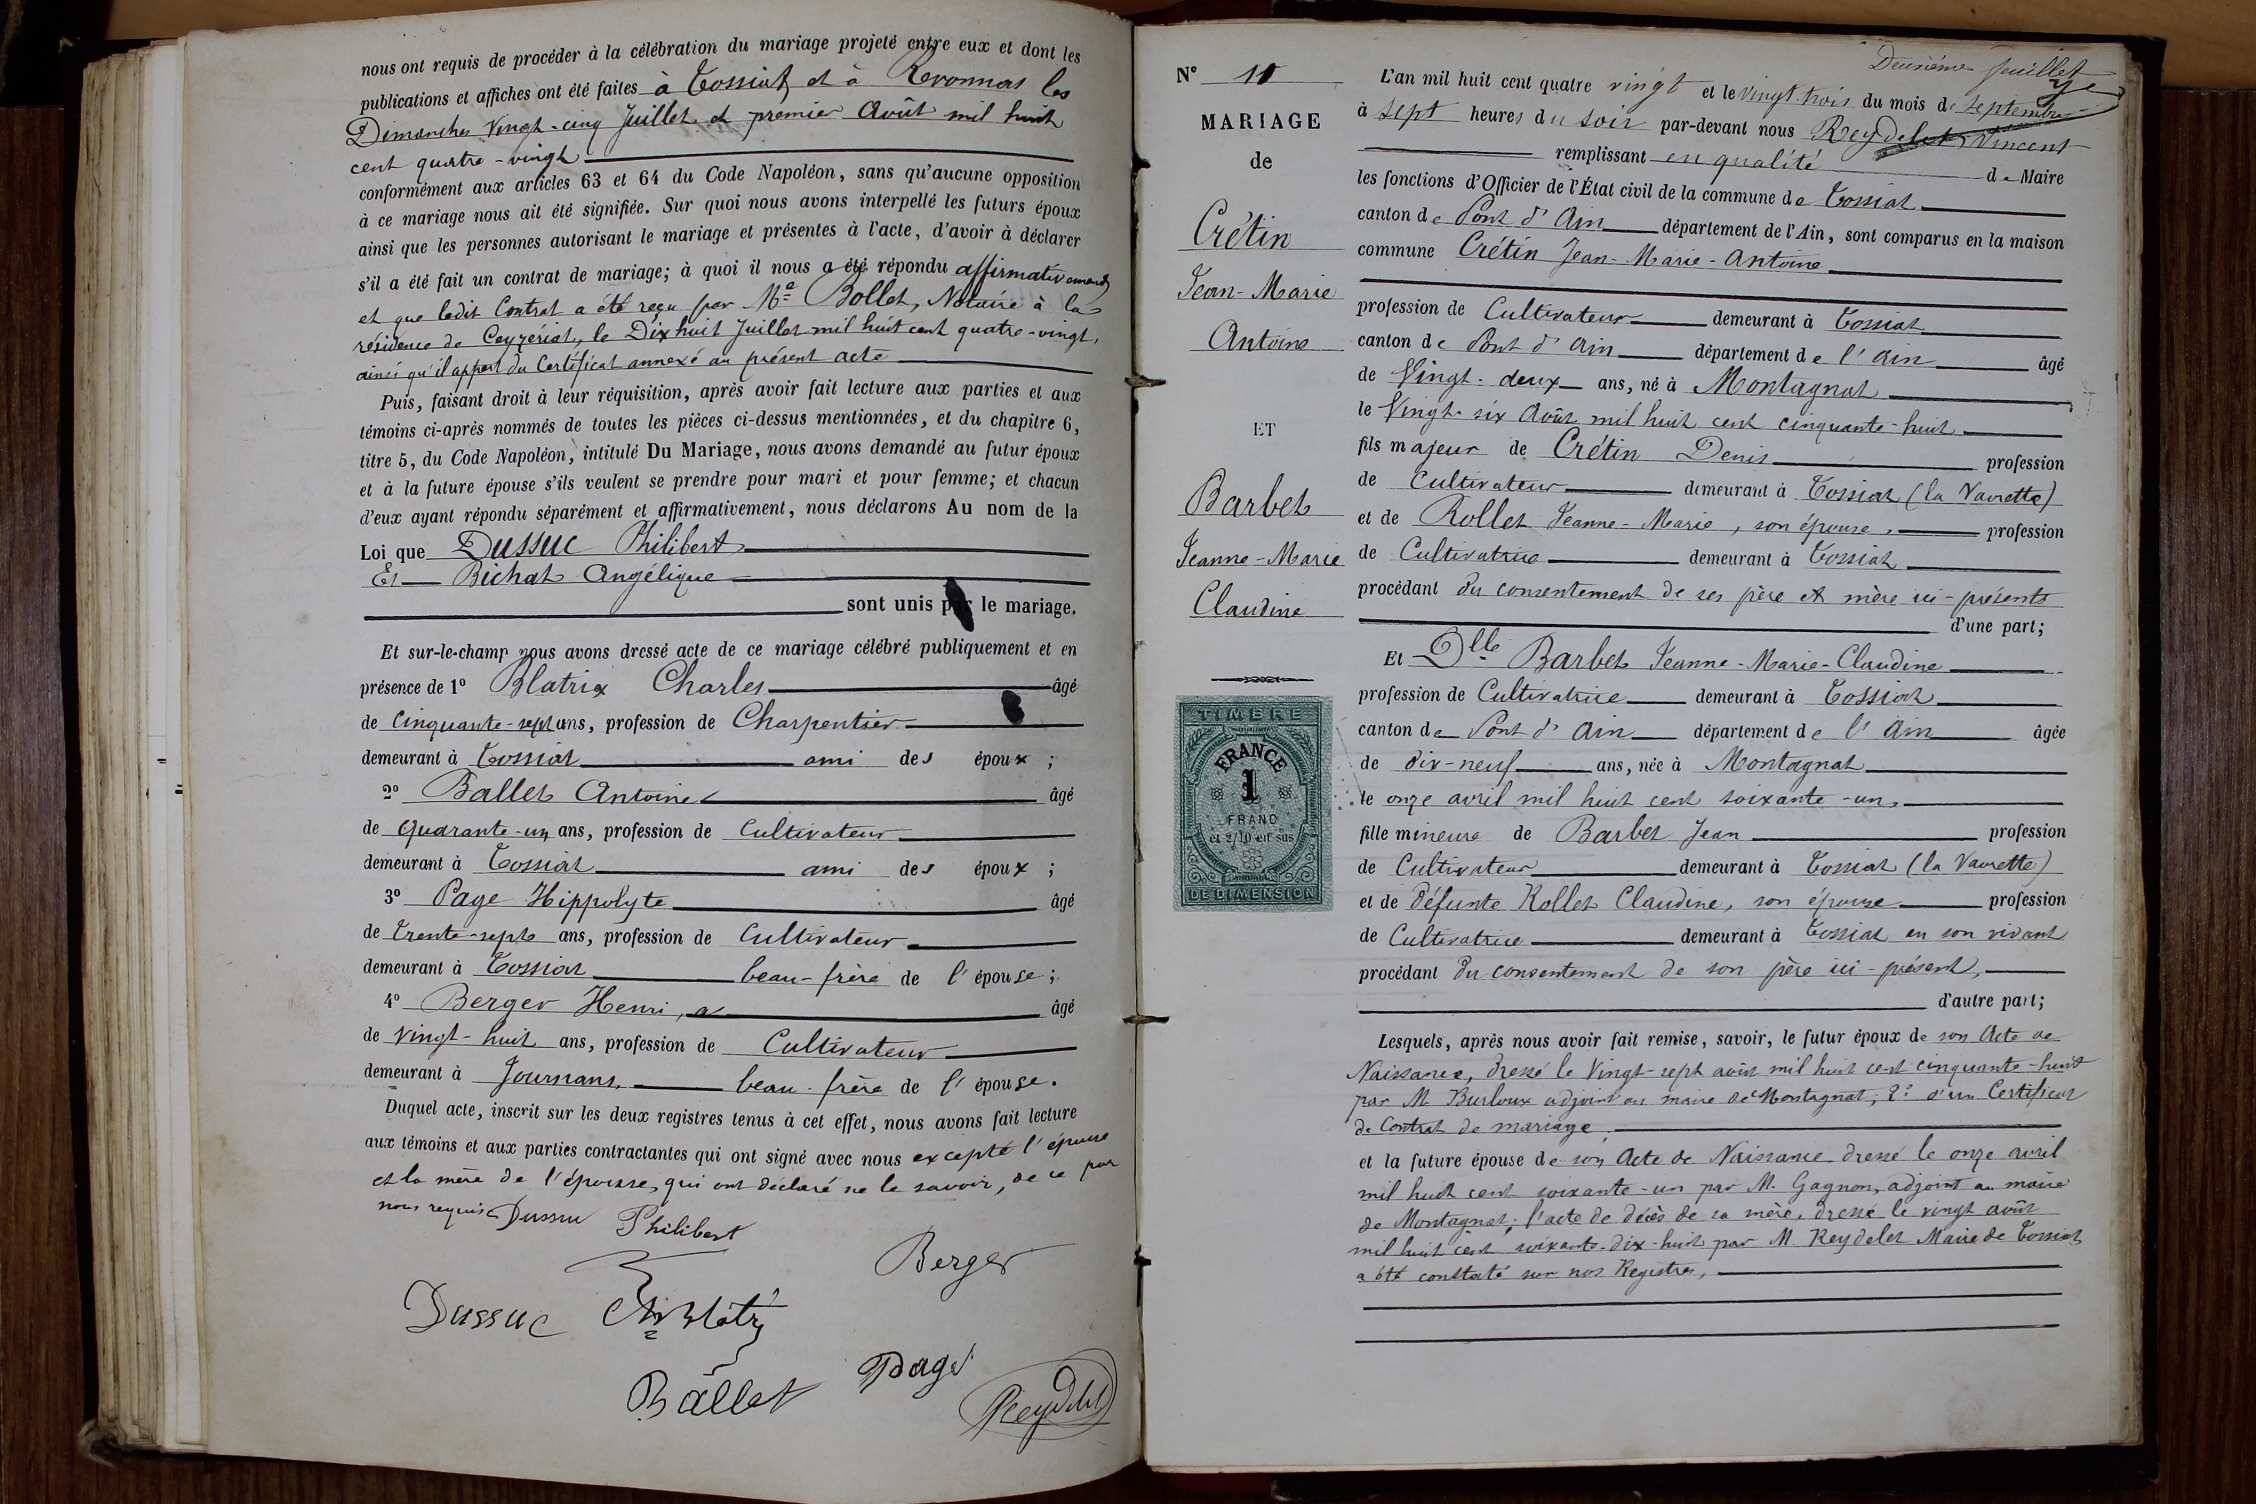 nous ont requis de procéder à la célébration du mariage projeté entre eux et dont les
publications et affiches ont été faites à Tossiat et à Revonnas les
Dimanches Vingt-cinq Juillet et premier Août mil huit
cent quatre-vingt
conformément aux articles 63 et 64 du Code Napoléon, sans qu'aucune opposition
à ce mariage nous ait été signifiée. Sur quoi nous avons interpellé les futurs époux
ainsi que les personnes autorisant le mariage et présentes à l'acte, d'avoir à déclarer
s'il a été fait un contrat de mariage; à quoi il nous a été répondu affirmativement
et que ledit Contrat a été reçu par Me Bollet, Notaire à la
résidence de Ceyzériat, le Dix huit Juillet mil huit cent quatre-vingt,
ainsi qu'il appert du Certificat annexé au présent acte
Puis, faisant droit à leur réquisition, après avoir fait lecture aux parties et aux
témoins ci-après nommés de toutes les pièces ci-dessus mentionnées, et du chapitre 6,
titre 5, du Code Napoléon, intitulé Du Mariage, nous avons demandé au futur époux
et à la future épouse s'ils veulent se prendre pour mari et pour femme; et chacun
d'eux ayant répondu séparément et affirmativement, nous déclarons Au nom de la
Loi que Dussuc Philibert
Et Bichat Angélique
sont unis par le mariage.
Et sur-le-champ nous avons dressé acte de ce mariage célébré publiquement et en
présence de 1° Blatrix Charles âgé
de Cinquante-sept ans, profession de Charpentier
demeurant à Tossiat ami des époux ;
2° Ballet Antoine âgé
de Quarante-un ans, profession de Cultivateur
demeurant à Tossiat ami des époux ;
3° Page Hippolyte âgé
de Trente-sept ans, profession de Cultivateur
demeurant à Tossiat beau-frère de l'épouse ;
4° Berger Henri, âgé
de Vingt-huit ans, profession de Cultivateur
demeurant à Journans, beau-frère de l'épouse.
Duquel acte, inscrit sur les deux registres tenus à cet effet, nous avons fait lecture
aux témoins et aux parties contractantes qui ont signé avec nous excepté l'épouse
et la mère de l'épouse, qui ont déclaré ne le savoir, de ce par
nous requis Dussuc Philibert
Berger
Dussuc
Ballet Page Reydelet
Deuxième feuillet
N° 10
MARIAGE
de
Crétin
Jean-Marie
Antoine
ET
Barbet
Jeanne-Marie
Claudine
TIMBRE
FRANCE
1
FRANC
et 2/10 en sus
DE DIMENSION
L'an mil huit cent quatre vingt et le vingt-trois du mois de septembre
à sept heures du soir par-devant nous Reydelet Vincent
remplissant en qualité de Maire
les fonctions d'Officier de l'État civil de la commune de Tossiat
canton de Pont d'Ain département de l'Ain, sont comparus en la maison
commune Crétin Jean-Marie-Antoine
profession de Cultivateur demeurant à Tossiat
canton de Pont d'Ain département de l'Ain âgé
de Vingt-deux ans, né à Montagnat
le Vingt-six Août mil huit cent cinquante-huit
fils majeur de Crétin Denis profession
de Cultivateur demeurant à Tossiat (la Vavrette)
et de Rollet Jeanne-Marie, son épouse, profession
de Cultivatrice demeurant à Tossiat
procédant du consentement de ses père et mère ici-présents
d'une part;
Et Dlle Barbet Jeanne-Marie-Claudine
profession de Cultivatrice demeurant à Tossiat
canton de Pont d'Ain département de l'Ain âgée
de dix-neuf ans, née à Montagnat
le onze avril mil huit cent soixante-un,
fille mineure de Barbet Jean profession
de Cultivateur demeurant à Tossiat (la Vavrette)
et de défunte Rollet Claudine, son épouse profession
de Cultivatrice demeurant à Tossiat en son vivant
procédant du consentement de son père ici-présent,
d'autre part;
Lesquels, après nous avoir fait remise, savoir, le futur époux de son Acte de
Naissance, dressé le Vingt-sept août mil huit cent cinquante-huit
par M Burloux adjoint au maire de Montagnat; 2° d'un Certificat
de Contrat de mariage;
et la future épouse de son Acte de Naissance dressé le onze avril
mil huit cent soixante-un par M. Gagnon, adjoint au maire
de Montagnat; l'acte de décès de sa mère, dressé le vingt août
mil huit cent soixante-dix-huit par M. Reydelet Maire de Tossiat
a été constaté sur nos Registres,